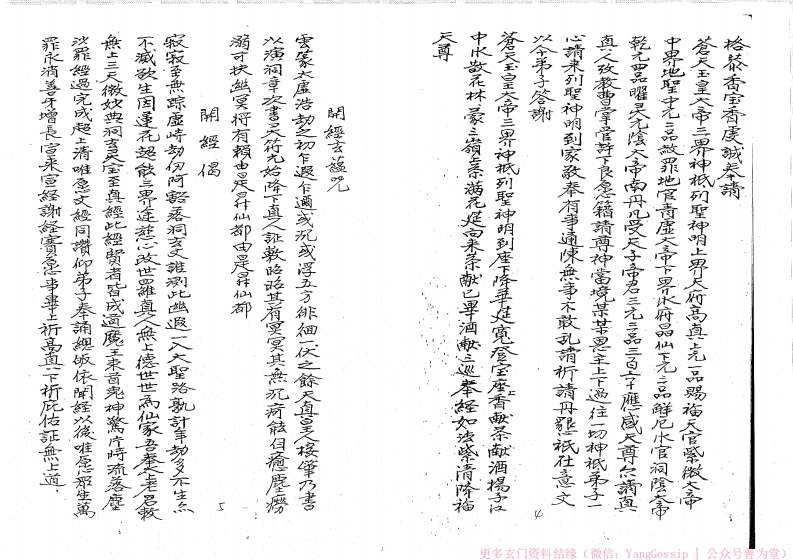 格恭香宝香虔誠奉請
蒼天玉皇大帝三界神祇列聖神明上界天府高真上元一品賜福天官紫微大帝
中界地聖中元二品赦罪地官青虛大帝下界水府品仙下元三品解厄水官祠陰大帝
乾元四品曜灵元陰大帝南丹凡受天子帝君三元三品三百六十應感天尊尓請真
真人攷教曹掌官許下良愿籍請尊神當境某某恩主上下過往一切神祇弟子一
心請來列聖神明到家敬奉有事通陳無事不敢乱請祈請丹懇祇在意文
以今弟子答謝
蒼天玉皇大帝三界神祇列聖神明到座下降華筵寬登宝座上香献茶献酒揚子江
中水散花林蒙山嶺上茶滿花筵向來茶献已畢酒献三巡奉經如法紫清降福
天尊
4
開經玄蘊咒
雲篆太虛浩劫之初乍遐乍邇或沉或浮五方徘徊一伏之餘天真皇人按筆乃書
以演祠章次書灵符元始降下真人証教昭昭其有冥冥其無沉疴能自癒塵勞
溺可扶幽冥將有賴由是昇仙都由是昇仙都
開經偈
寂寂至無踪虛峙劫仞阿豁落洞玄文誰測此幽遐一入大聖路孰計年劫多不生亦
不滅欲生因蓮花超骸三界途慈心攷世羅真人無上德世世為仙家吾奉太上老君敕
無上三天微妙典祠玄灵宝至真經此經贊者皆成道魔王束首鬼神驚片時流落塵
沙罪經過完成超上清唯愿文經同讚仰弟子奉誦總皈依開經以後唯愿眾生萬
罪永消善牙增長宣來宣經謝經寶愿事畢上祈高真下祈庇佑証無上道
5
更多玄门资料结缘（微信：YangGossip | 公众号善为堂）